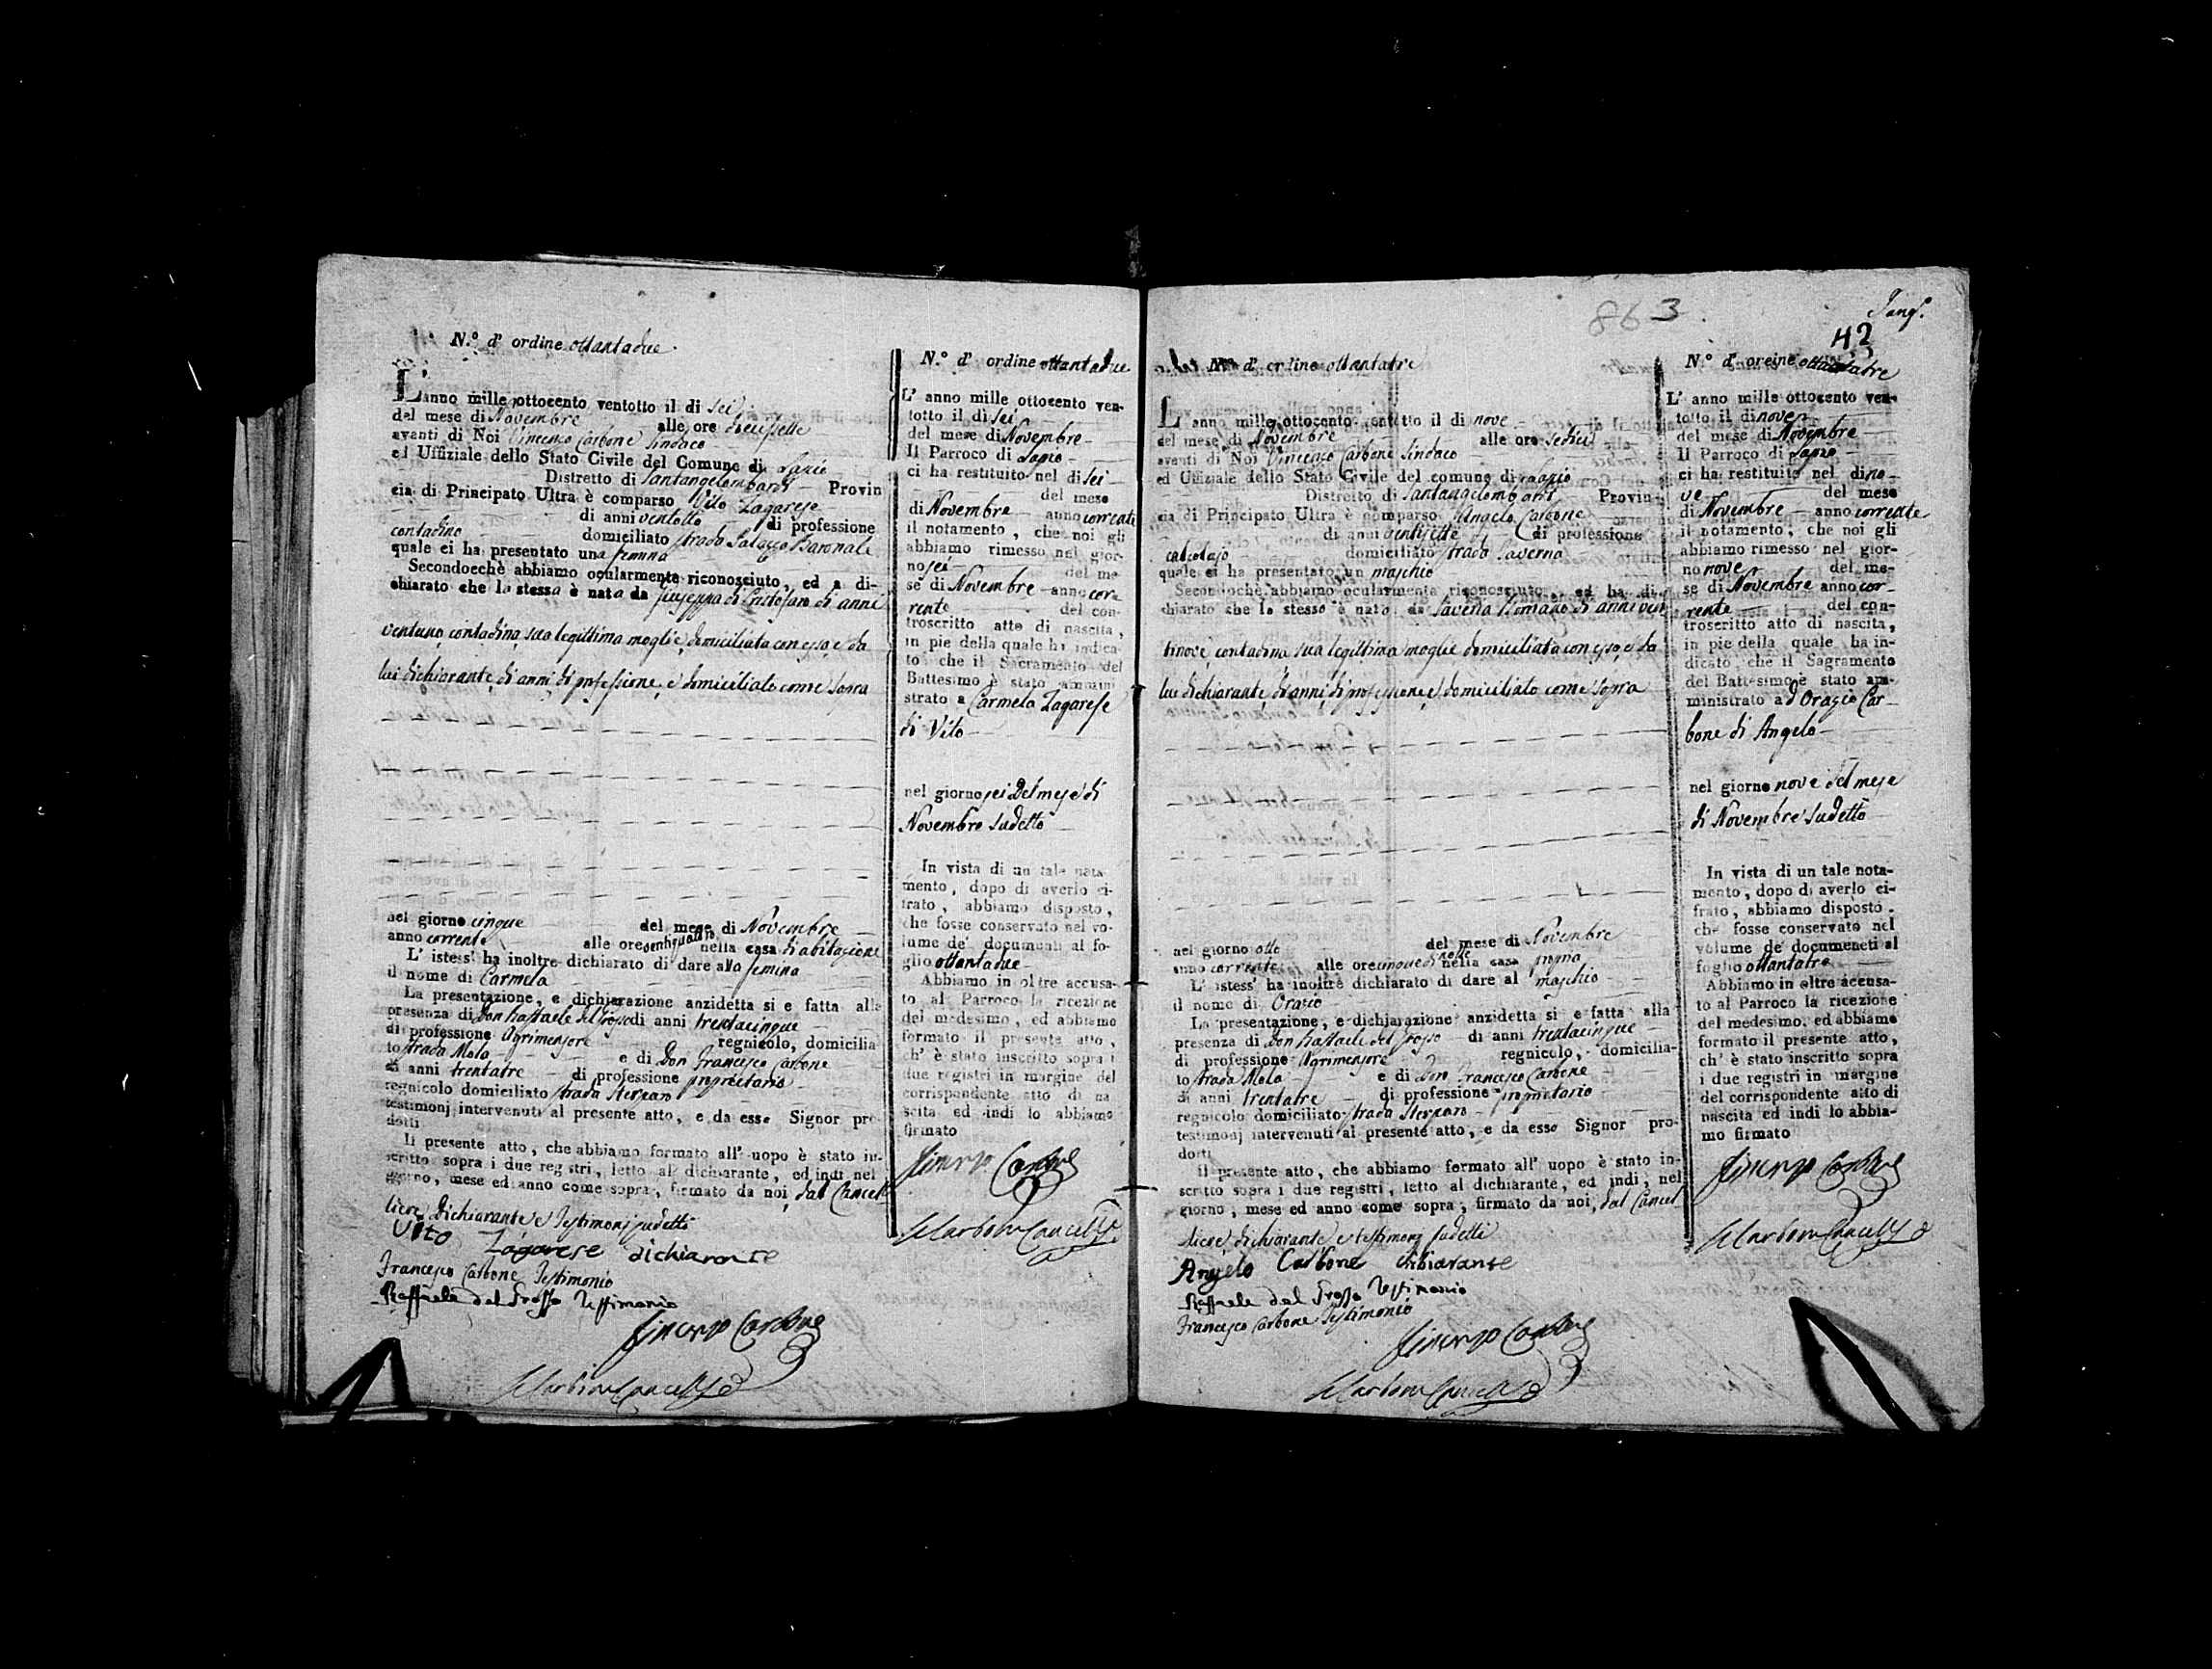 N.º d' ordine ottantadue
L' anno mille ottocento ventotto il di sei
del mese di Novembre alle ore diecissette
avanti di Noi Vincenzo Carbone Sindaco
ed Uffiziale dello Stato Civile del Comune di
Distretto di Santangelombardi Provin
cia di Principato Ultra è comparso Vito Zagarese
di anni ventotto di professione
contadino domiciliato strada Palazzo Baronale
quale ci ha presentato una femina
Secondochè abbiamo ocularmente riconosciuto, ed a di-
chiarato che la stessa è nata da Giuseppa di Cristofaro di anni
ventuno, contadina, sua legittima moglie, domiciliata con esso, e da
lui dichiarante, di anni di professione, e domiciliato come sopra
nel giorno cinque del mese di Novembre
anno corrente alle ore ventiquattro nella casa di abitazione
L' istess' ha inoltre dichiarato di dare alla femina
il nome di Carmela
La presentazione, e dichiarazione anzidetta si e fatta alla
presenza di Don Raffaele del Grosso di anni trentacinque
di professione Agrimensore regnicolo, domicilia
to strada Mola e di Don Francesco Carbone
di anni trentatre di professione proprietario
regnicolo domiciliato strada
testimonj intervenuti al presente atto, e da esso Signor pro-
dotti
Il presente atto, che abbiamo formato all' uopo è stato in-
scritto sopra i due registri, letto al dichiarante, ed indi nel
giorno, mese ed anno come sopra, firmato da noi, dal Cancel
liere, dichiarante e testimonj sudetti
Vito Zagarese dichiarante
Francesco Carbone Testimonio
Raffaele del Grosso Testimonio
Vincenzo Carbone
N.º d' ordine ottantadue
L' anno mille ottocento ven-
totto il di sei
del mese di Novembre
Il Parroco di
ci ha restituito nel di sei
del mese
di Novembre anno corrente
il notamento, che noi gli
abbiamo rimesso nel gior-
no sei del me
se di Novembre anno cor
rente del con-
troscritto atto di nascita,
in pie della quale ha indica
to che il Sacramento del
Battesimo è stato ammini
strato a Carmela Zagarese
di Vito
nel giorno sei Del mese di
Novembre sudetto
In vista di un tale nota-
mento, dopo di averlo ci-
frato, abbiamo disposto,
che fosse conservato nel vo-
lume de' documenti al fo-
glio ottantadue
Abbiamo in oltre accusa-
to al Parroco la ricezione
del medesimo, ed abbiamo
formato il presente atto,
ch' è stato inscritto sopra i
due registri in margine del
corrispondente atto di na
scita ed indi lo abbiamo
firmato
Vincenzo Carbone
863
42
N.º d' ordine ottantatre
L' anno mille ottocento ventotto il di nove
del mese di Novembre alle ore sedici
avanti di Noi Vincenzo Carbone Sindaco
ed Uffiziale dello Stato Civile del comune di
Distretto di Santangelombardi Provin-
cia di Principato Ultra è comparso Angelo Carbone
di anni ventisette di professione
calzolajo domiciliato strada Taverna
quale ci ha presentato un maschio
Secondochè abbiamo ocularmente riconosciuto, ed ha di-
chiarato che lo stesso è nato da Saveria Romano di anni ven
tinove, contadina, sua legittima moglie domiciliata con esso, e da
lui dichiarante, di anni, di professione, e domiciliato come sopra
nel giorno otto del mese di Novembre
anno corrente alle ore cinque di notte nella casa propria
L' istess' ha inoltre dichiarato di dare al maschio
il nome di Orazio
La presentazione, e dichiarazione anzidetta si e fatta alla
presenza di Don Raffaele del Grosso di anni trentacinque
di professione Agrimensore regnicolo, domicilia-
to strada Mola e di Don Francesco Carbone
di anni trentatre di professione proprietario
regnicolo domiciliato strada
testimonj intervenuti al presente atto, e da esso Signor pro-
dotti
Il presente atto, che abbiamo formato all' uopo è stato in-
scritto sopra i due registri, letto al dichiarante, ed indi, nel
giorno, mese ed anno come sopra, firmato da noi, dal Cancel
liere, dichiarante e testimonj sudetti
Angelo Carbone dichiarante
Raffaele del Grosso Testimonio
Francesco Carbone Testimonio
Vincenzo Carbone
N.º d' oreine ottantatre
L' anno mille ottocento ven-
totto il di nove
del mese di Novembre
Il Parroco di
ci ha restituito nel di no-
ve del mese
di Novembre anno corrente
il notamento, che noi gli
abbiamo rimesso nel gior-
no nove del me-
se di Novembre anno cor-
rente del con-
troscritto atto di nascita,
in pie della quale ha in-
dicato che il Sagramento
del Battesimo è stato am-
ministrato ad Orazio Car-
bone di Angelo
nel giorno nove del mese
di Novembre sudetto
In vista di un tale nota-
mento, dopo di averlo ci-
frato, abbiamo disposto.
che fosse conservato nel
volume de' documeneti al
foglio ottantatre
Abbiamo in oltre accusa-
to al Parroco la ricezione
del medesimo. ed abbiamo
formato il presente atto,
ch' è stato inscritto sopra
i due registri in margine
del corrispondente atto di
nascita ed indi lo abbia-
mo firmato
Vincenzo Carbone